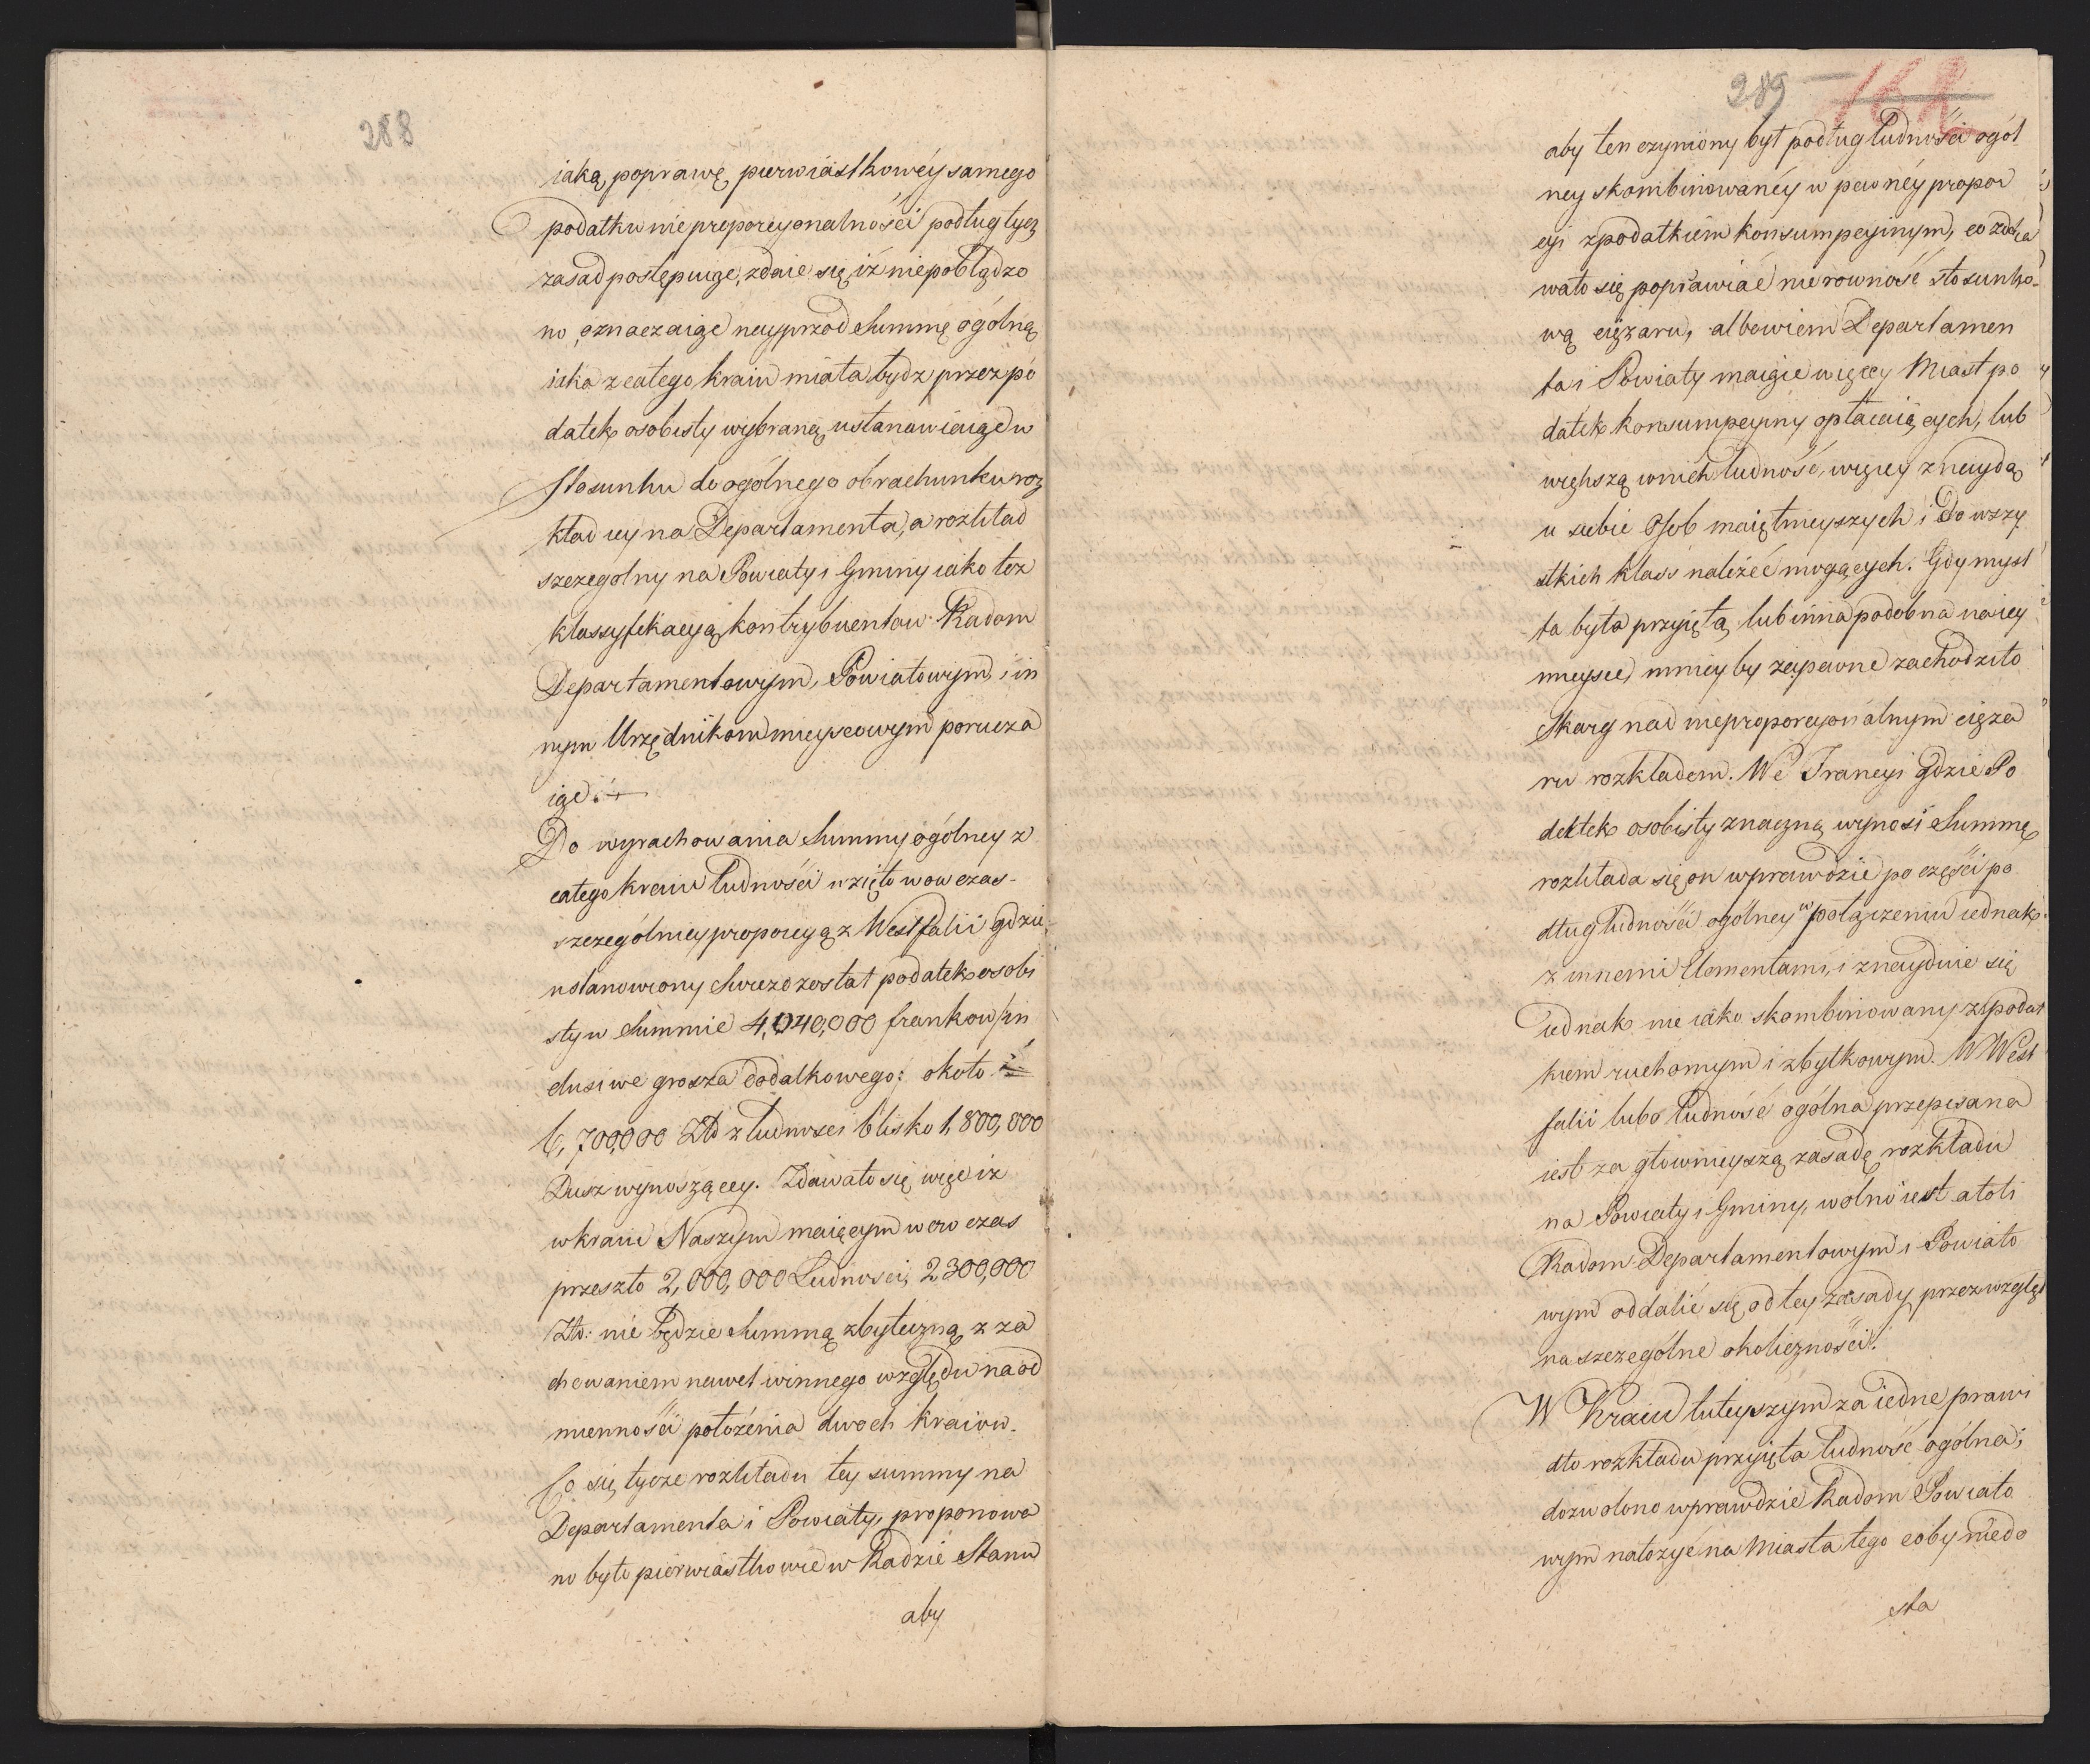 288
iaką poprawę pierwiastkowéy samego
podatku nieproporcyonalności podług tych
zasad postępuiąc, zdaie się iż niepobłądzo
no, oznaczaiąc nayprzod Summę ogólną
iaka z całego kraiu miała bydz przez po
datek osobisty wybraną, ustanawiaiąc w
Stosunku do ogólnego obrachunku roz
kład iey na Departamenta, a rozkład
szczegolny na Powiaty i Gminy iako też
klassyfikacyą kontrybuentow Radom
Departamentowym, Powiatowym, i in
nym Urzędnikom mieyscowym porucza
iąc.
Do wyrachowania Summy ogólney z
całego kraiu ludności wzięto wowczas
szczególniey proporcyą z Westfalii gdzie
ustanowiony świeżo został podatek osobi
sty w Summie 4,040,000 frankow /in
clusiwe grosza dodatkowego: około
6,700,000 Złł z ludności blisko 1,800,000
Dusz wynoszącey. Zdawało się więc iż
w kraiu Naszym maiącym wowczas
przeszło 2,000,000 Ludności, 2300,000
Złł: nie będzie Summą zbyteczną z za
chowaniem nawet winnego względu na od
mienności położenia dwoch kraiow.
Co się tycze rozkładu tey summy na
Departamenta i Powiaty, proponowa
no było pierwiastkowie w Radzie Stanu
aby
289 162
aby ten czyniony był podług ludności ogól
ney skombinowanéy w pewnéy propor
cyi z podatkiem konsumpcyinym, co zda
wało się poprawiać nierowność stosunko-
wą ciężaru, albowiem Departamen
ta i Powiaty maiące więcey Miast po
datek konsumpcyiny opłacaiących, lub
większą w nich ludność, więcey znaydą
u siebie Osob maiętnieyszych i do wszy
stkich klass należeć mogących. Gdy myśl
ta była przyiętą, lub inna podobna na iey
mieysce, mniey by zapewne zachodziło
Skarg nad nieproporcyonalnym cięża
ru rozkładem. We Francyi gdzie Po
datek osobisty znaczną wynosi Summę
rozkłada się on wprawdzie po części po
dług ludności ogólney w połączeniu iednak
z innemi Elementami, i znayduie się
iednak nieiako skombinowany z podat
kiem ruchomym i zbytkowym. W West
falii lubo ludność ogólna przepisana
iest za głownieyszą zasadę rozkładu
na Powiaty i Gminy, wolno iest atoli
Radom Departamentowym i Powiato
wym oddalić się od tey zasady przez wzgląd
na szczególne okoliczności.
W Kraiu tuteyszym za iedne prawi
dło rozkładu przyięta ludność ogólna;
dozwolono wprawdzie Radom Powiato
wym nałożyć na Miasta tego coby niedo
sta